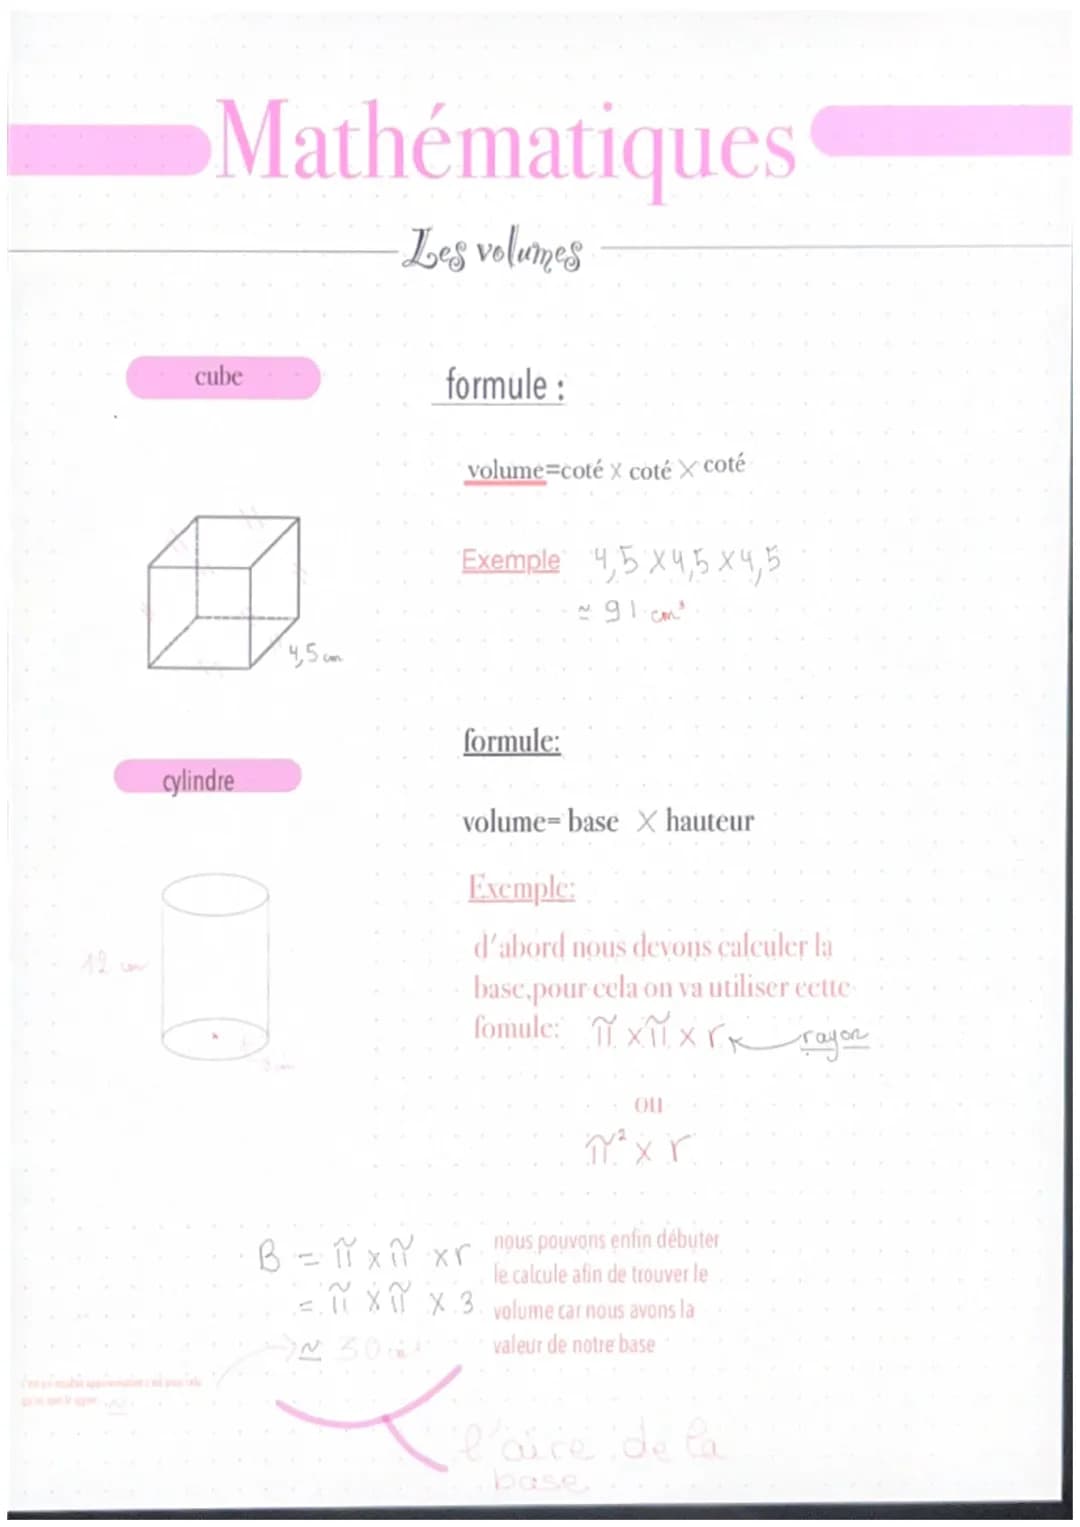 Mathématiques
Les volumes
cube
formule :
volume=coté x coté x coté
Exemple 4,5 x 4,5 x 4,5
≈ 91 cm³
4,5 cm
formule:
cylindre
volume= base x hauteur
Exemple:
d'abord nous devons calculer la
base,pour cela on va utiliser cette
fomule: π x π x r rayon
12 cm
ou
π² x r
B = π x π x r
= π x π x 3
≈ 30
nous pouvons enfin débuter
le calcule afin de trouver le
volume car nous avons la
valeur de notre base
l'aire de la
base